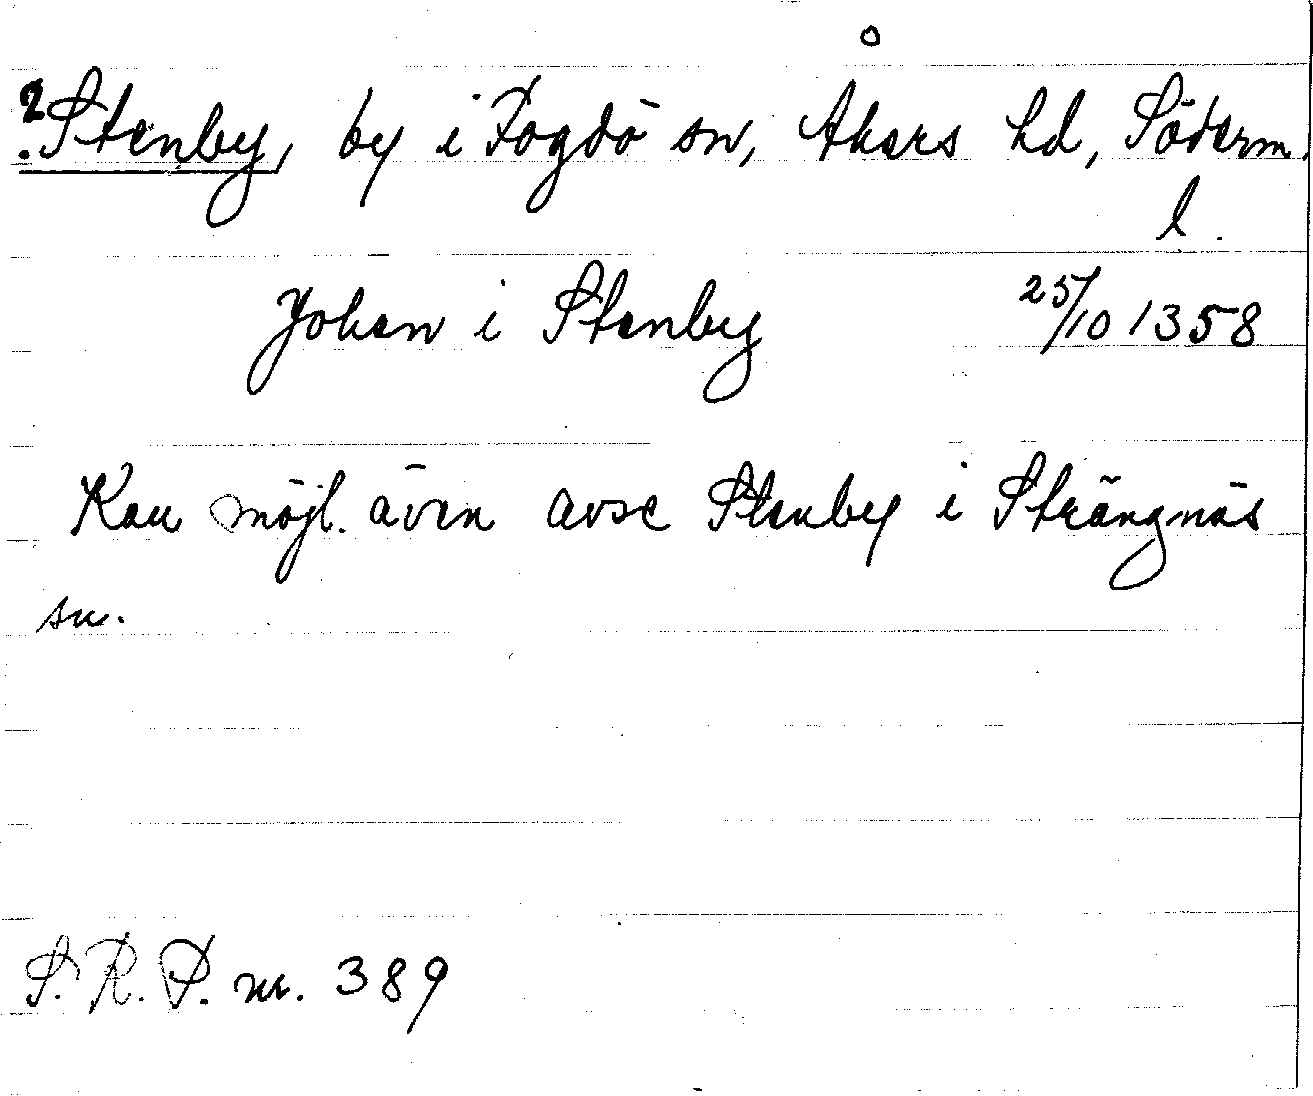 ?Stenby, by i Fogdö sn, Åkers hd, Söderm.
l.
Johan i Stenby 25/10 1358
Kan möjl. även avse Stenby i Strängnäs
sn.
S.R.P. nr. 389